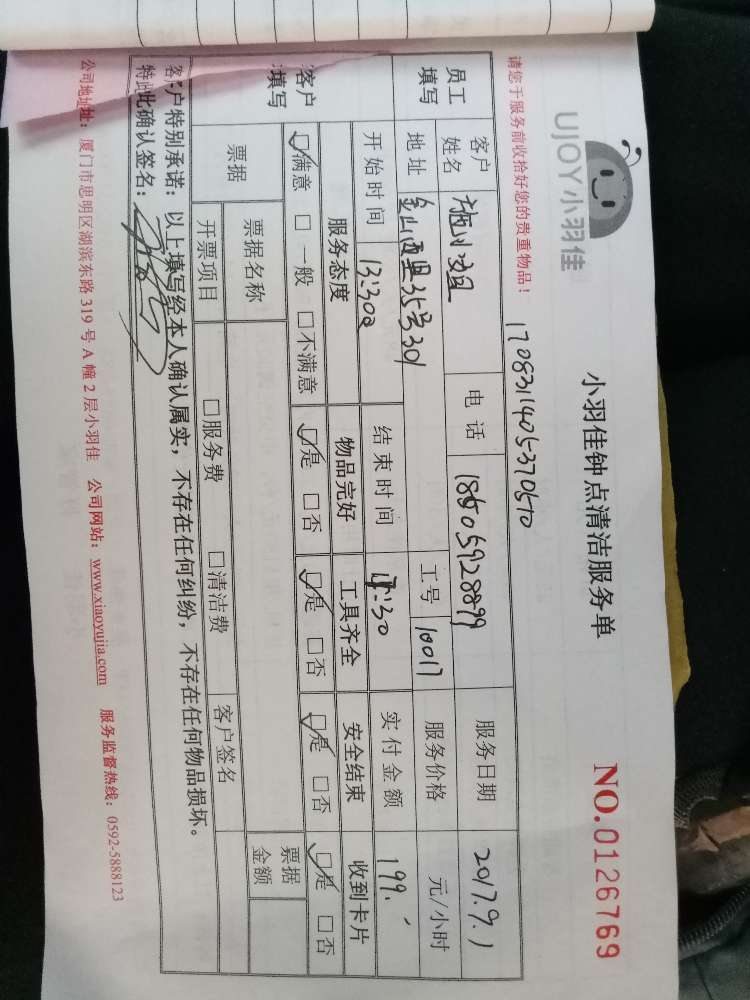 UJOY小羽佳
小羽佳钟点清洁服务单
NO.0126769
请您于服务前收拾好您的贵重物品！
1708311405370570
员工填写 客户姓名 电话 18605928899 服务日期 2017.9.1
地址 金山西里35号301 工号 10017 服务价格 元/小时
开始时间 13:30 结束时间 :30 实付金额 199.
客户填写 服务态度 物品完好 工具齐全 安全结束 收到卡片
☑满意 □一般 □不满意 ☑是 □否 ☑是 □否 ☑是 □否 ☑是 □否
票据 票据名称 票据金额
开票项目 □服务费 □清洁费 客户签名
客户特别承诺：以上填写经本人确认属实，不存在任何纠纷，不存在任何物品损坏。
特此确认签名：
公司地址：厦门市思明区湖滨东路319号A幢2层小羽佳 公司网站：www.xiaoyujia.com 服务监督热线：0592-5888123